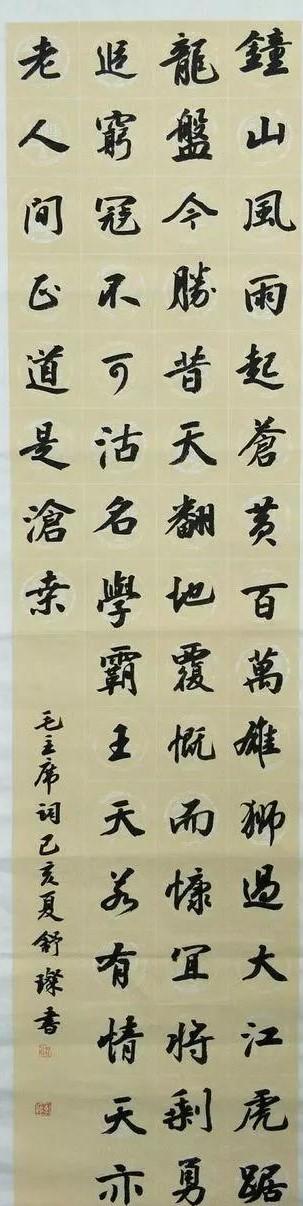 鐘山風雨起蒼黄百萬雄獅過大江虎踞
龍盤今勝昔天翻地覆慨而慷宜將剩勇
追窮冦不可沽名學霸王天若有情天亦
老人间正道是滄桒
毛主席词己亥夏舒璨書